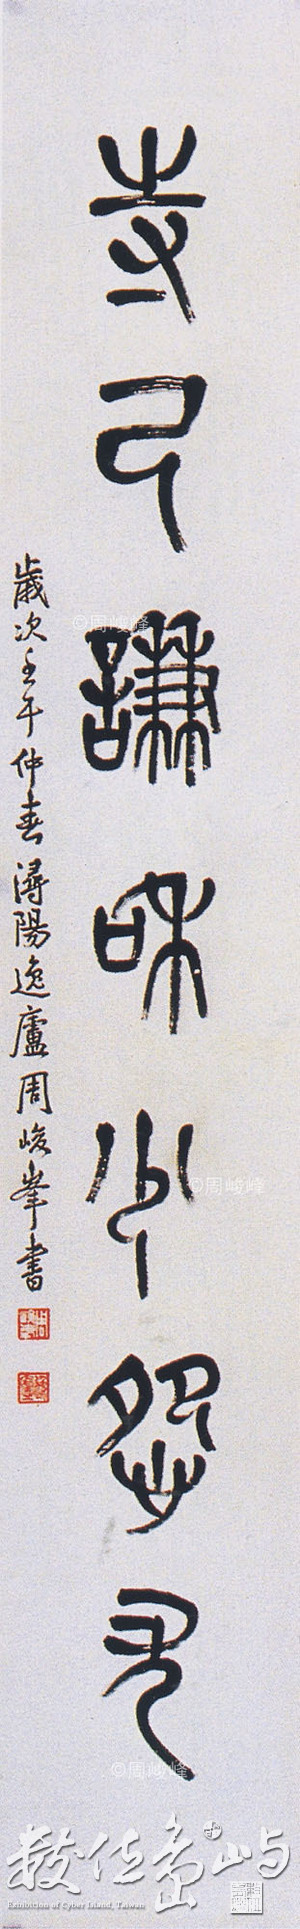 寺己謙和少怨尤
歲次壬午仲春潯陽逸廬周峻峯書
©周峻峰
©周峻峰
©周峻峰
數位島嶼
Exhibition of Cyber Island, Taiwan